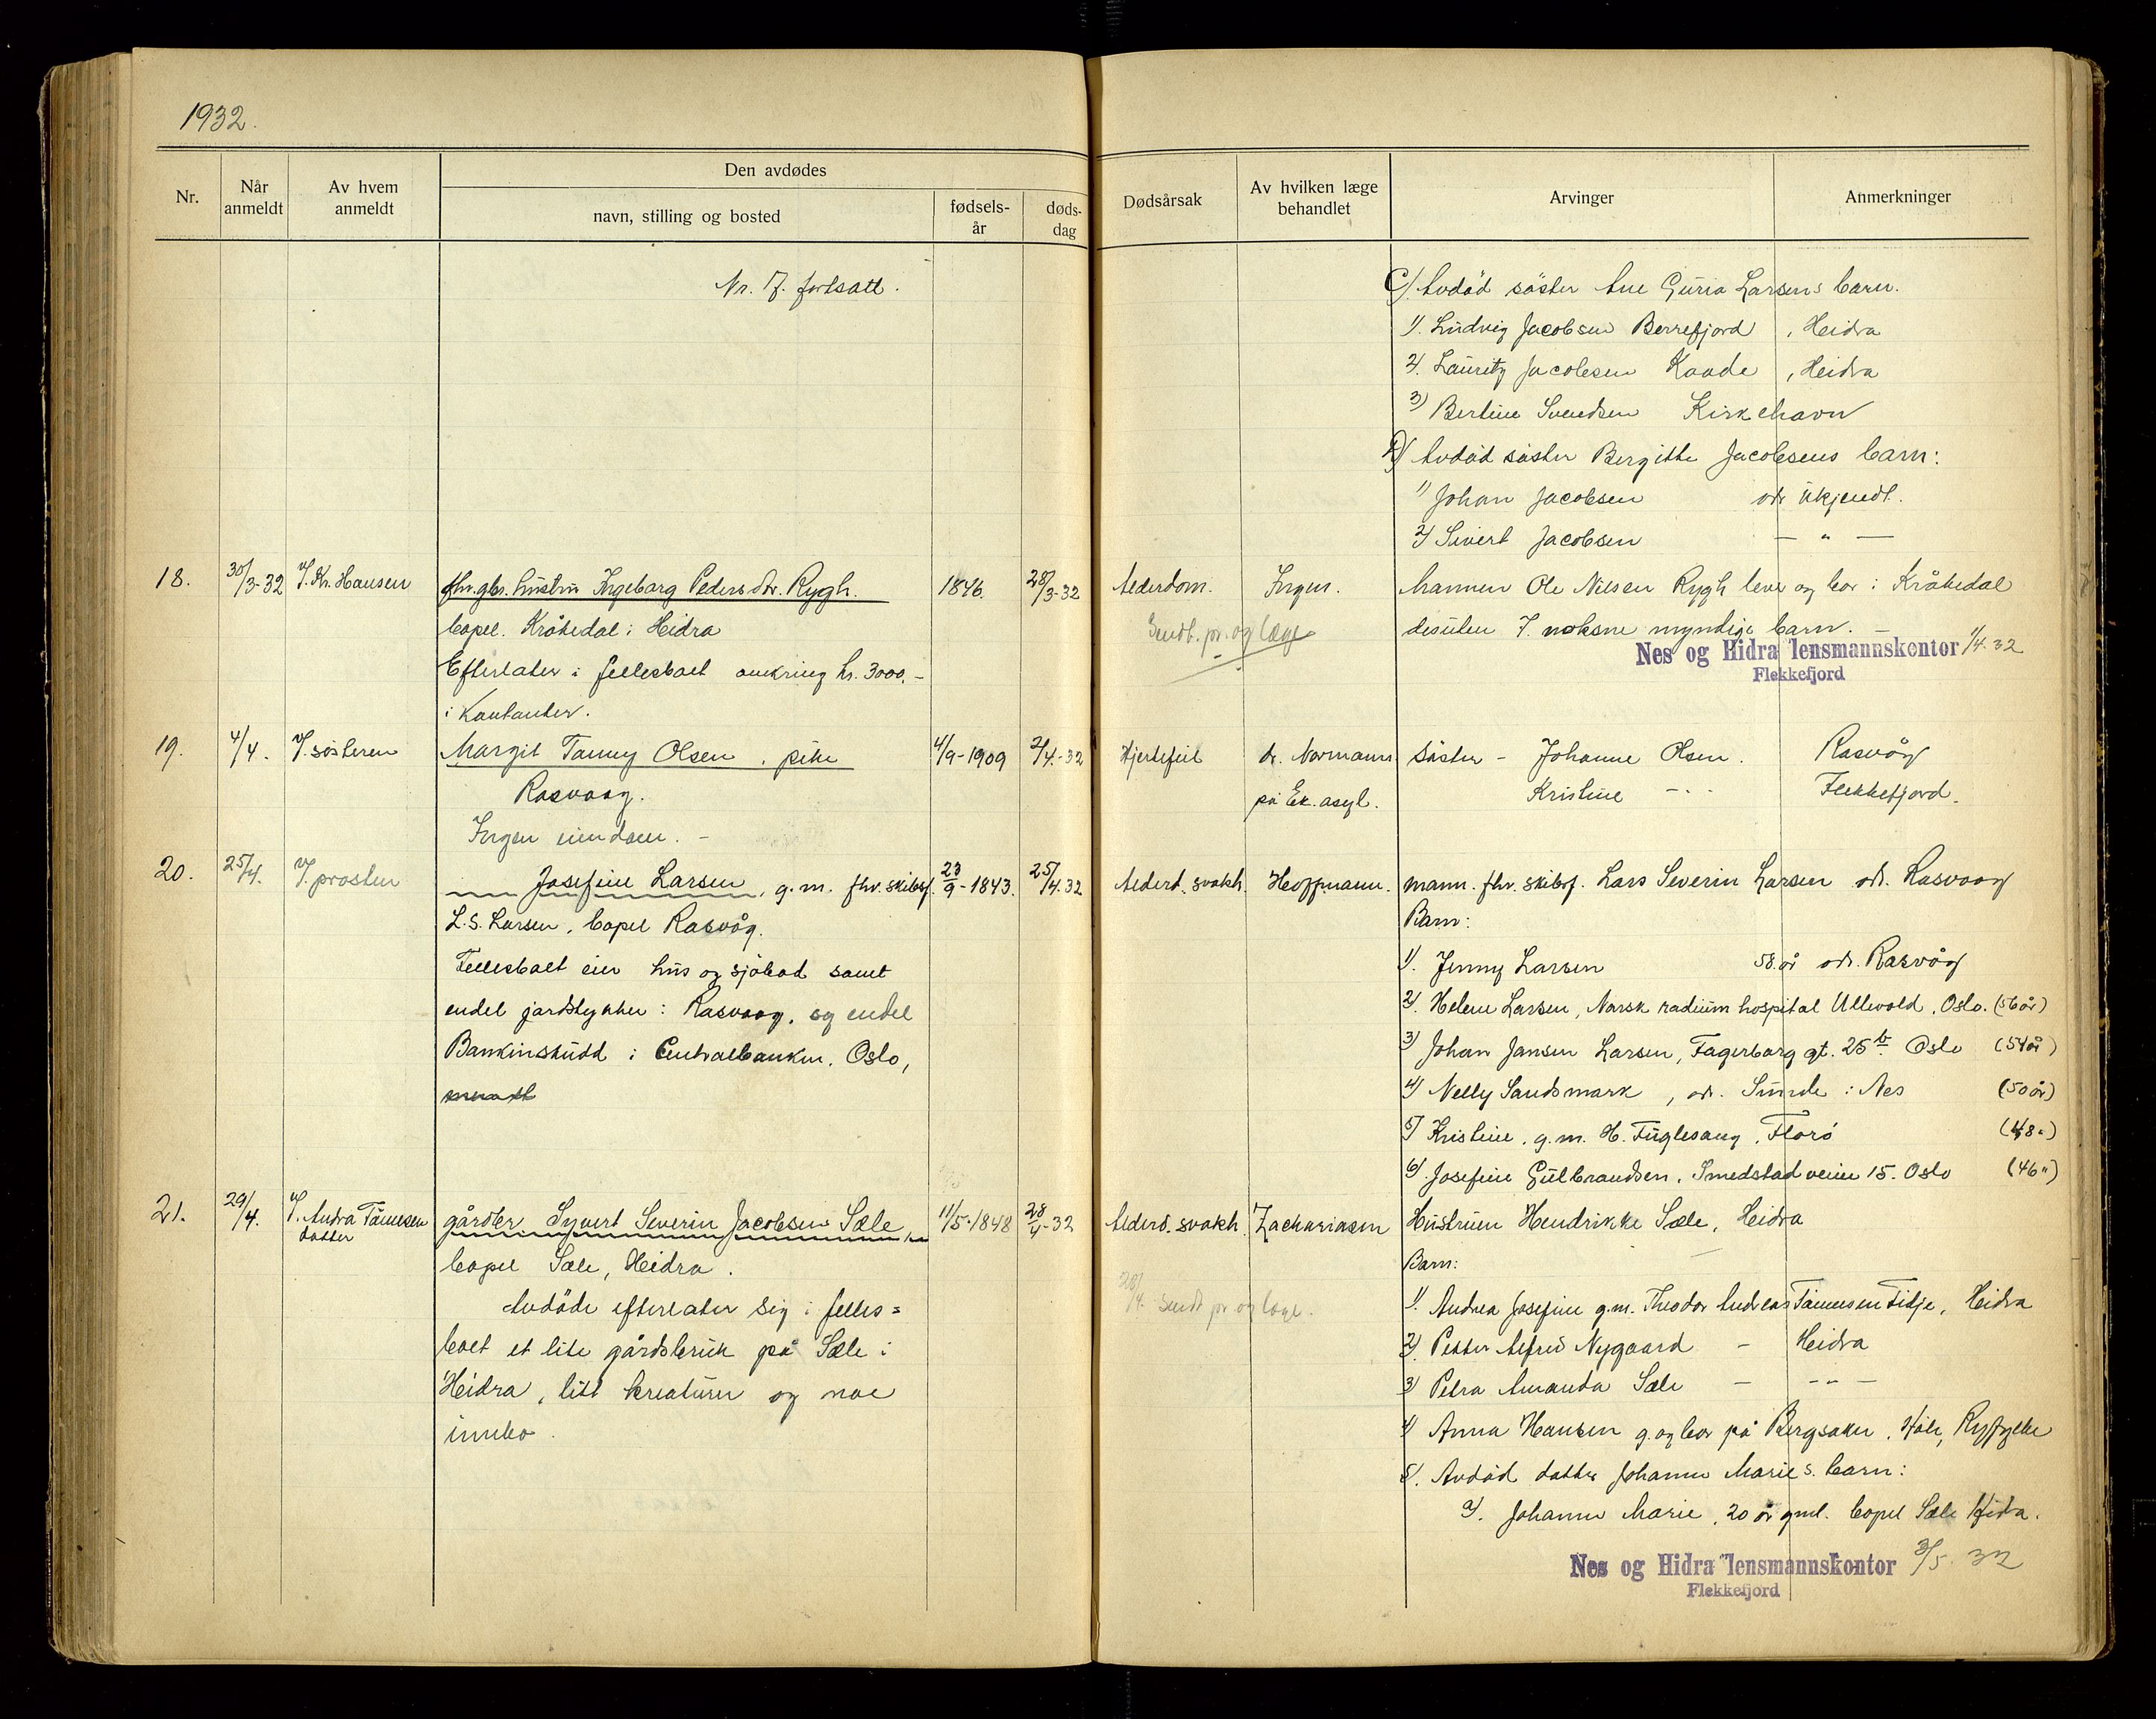 1932.
Nr.
Når anmeldt
Av hvem anmeldt
Den avdødes
navn, stilling og bosted
fødsels-år
døds-dag
Dødsårsak
Av hvilken læge behandlet
Arvinger
Anmerkninger
Nr. 17. fortsatt.
C) Avdöd söster Ane Guria Larsens barn.
1). Ludvig Jacobsen Berrefjord, Heidra
2). Lauritz Jacobsen Kaade, Heidra
3) Bertine Svendsen Kirkehavn
D) Avdöd söster Bergitte Jacobsens barn:
1) Johan Jacobsen adr ukjendt.
2) Sivert Jacobsen — " —
18. 30/3-32 V. Kr. Hansen fhv. gbr. hustru Ingeborg Pedersdtr. Rygh. 1846. 28/3-32 Alderdom. Ingen. Mannen Ole Nilsen Rygh lever og bor i Kråkedal
bopel. Kråkedal i Heidra Sendt. pr. og læge desuten 7. voksne myndige barn. —
Nes og Hidra lensmannskontor 1/4.32
Flekkefjord
Efterlater i fellesboet omkring kr. 3000.-
i kontanter.
19. 4/4. V. søsteren Margit Tanny Olsen, pike 4/9-1909 2/4.-32 Hjertefeil dr. Normann söster - Johanne Olsen. Rasvåg
Rasvaag. på Ek. asyl. Kristine - " - Flekkefjord.
Ingen eiendom. -
20. 25/4. V. prosten Josefine Larsen, g.m. fhv. skibsf. 23/9-1843. 25/4.32 Alderd. svakh. Hoffmann. mann. fhv. skibsf. Lars Severin Larsen adr. Rasvaag
L.S. Larsen, bopel Rasvåg. Barn:
Fellesboet eier hus og sjöbod samt 1). Jenny Larsen 58. år adr. Rasvåg
endel jordstykker i Rasvaag, og endel 2). Helene Larsen, Norsk radium hospital Ullevold, Oslo. (56 år)
Bankinskudd i Centralbanken, Oslo, 3) Johan Jansen Larsen, Fagerborg gt. 25 b. Oslo (54 år)
4) Nelly Sandsmark, adr. Sunde i Nes (50 år)
5) Kristine, g.m. H. Fuglesang, Florö (48 ")
6). Josefine Gulbrandsen, Smedstad veien 15. Oslo (46 ")
21. 29/4. V. Andrea Tønnesen datter gårdbr. Syvert Severin Jacobsen Sæle, 11/5-1848 28/4-32 Alderd. svakh. Zachariasen Hustruen Hendrikke Sæle, Heidra
bopel Sæle, Heidra. Barn:
Avdöde efterlater sig i felles= 28/4. sendt pr og læge. 1). Andrea Josefine g.m. Theodor Andreas Tønnesen Fidje, Heidra
boet et lite gårdsbruk på Sæle i 2). Petter Alfred Nygaard - Heidra
Heidra, litt kreaturer og noe 3) Petra Amanda Sæle - - " -
innbo. 4) Anna Hansen g. og bor på Bergsaker, Hjelm, Ryfylke
5). Avdöd datter Johanne Maries. barn:
a). Johanne Marie, 20 år gml. bopel Sæle Heidra.
Nes og Hidra lensmannskontor 3/5. 32
Flekkefjord